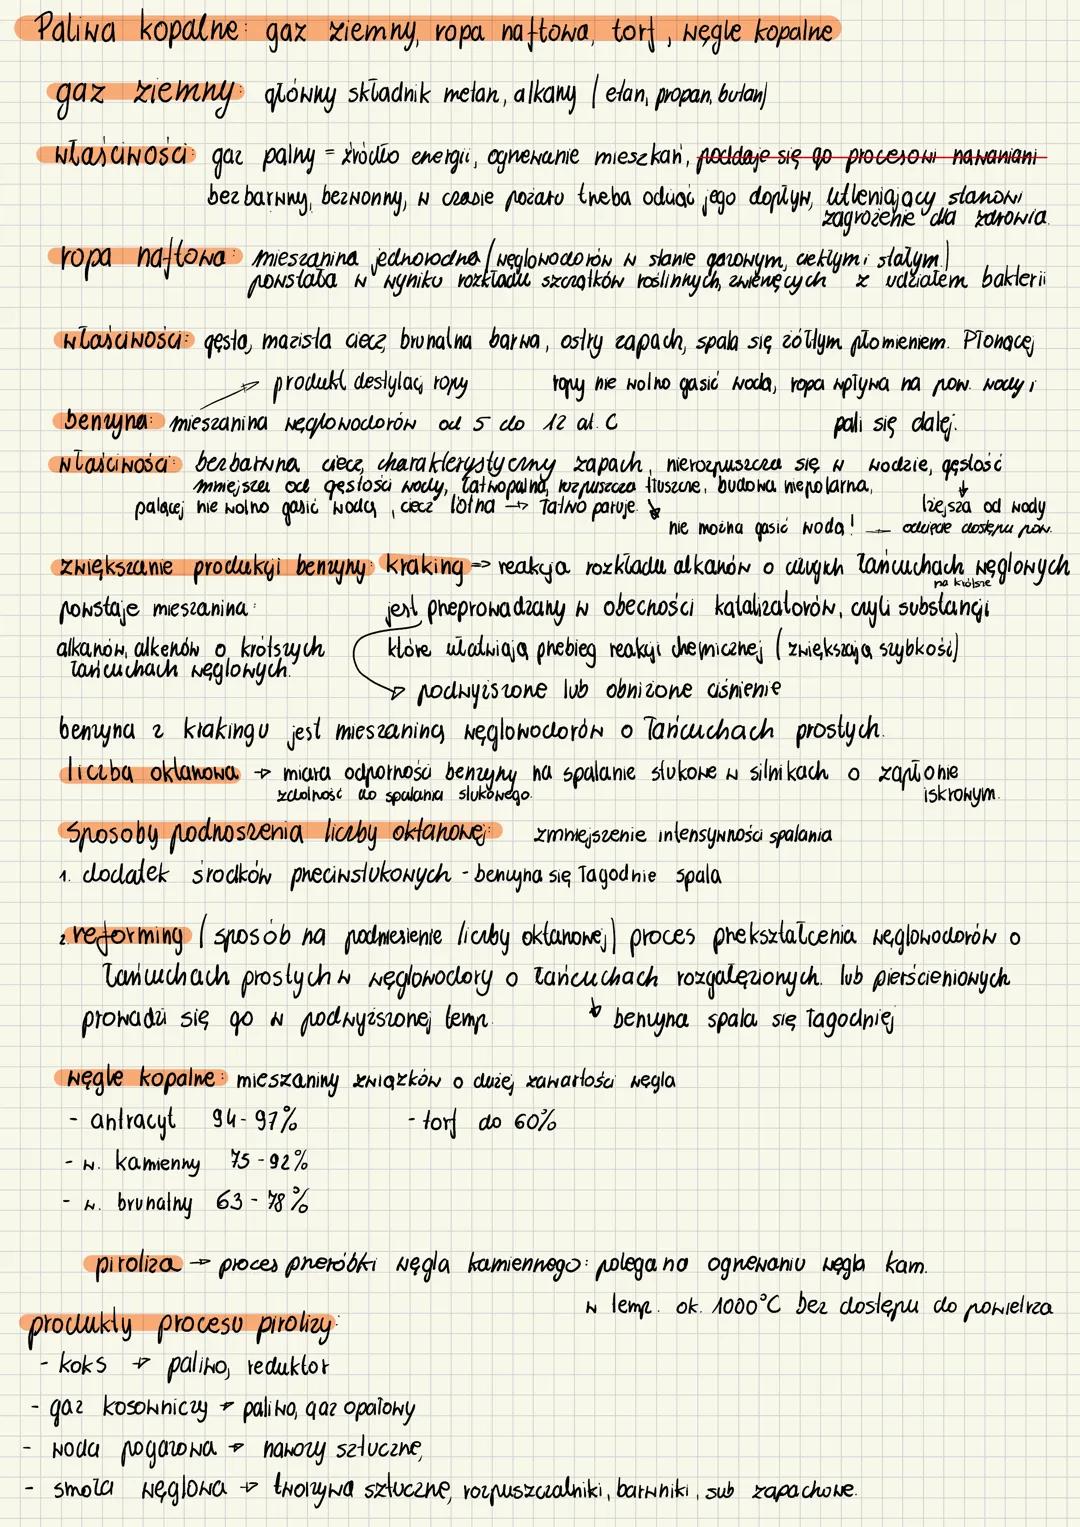 Paliwa kopalne: gaz ziemny, ropa naftowa, torf, węgle kopalne
gaz ziemny: główny składnik metan, alkany (etan, propan, butan)
właściwości: gaz palny = źródło energii, ogrzewanie mieszkań, poddaje się go procesowi nawaniani
bezbarwny, bezwonny, w czasie pożaru trzeba odciąć jego dopływ, utleniający stanowi
zagrożenie dla zdrowia.
ropa naftowa: mieszanina jednorodna (węglowodorów w stanie gazowym, ciekłym i stałym)
powstała w wyniku rozkładu szczątków roślinnych, zwierzęcych z udziałem bakterii
właściwości: gęsta, mazista ciecz, brunalna barwa, ostry zapach, spala się żółtym płomieniem. Płonącej
→ produkt destylacj ropy
ropy nie wolno gasić woda, ropa wpływa na pow. wody i
benzyna: mieszanina węglowodorów od 5 do 12 at. C
pali się dalej.
właściwości: bezbarwna ciecz, charakterystyczny zapach, nierozpuszcza się w wodzie, gęstość
mniejsza od gęstości wody, łatwopalna, rozpuszcza tłuszcze, budowa niepolarna,
palącej nie wolno gasić wodą, ciecz lotna → łatwo paruje.
lżejsza od wody
nie można gasić wodą! — odcięcie dostępu pow.
zwiększanie produkcji benzyny: kraking => reakcja rozkładu alkanów o długich łańcuchach węglowych
na krótsze
powstaje mieszanina:
jest przeprowadzany w obecności katalizatorów, czyli substancji
alkanów, alkenów o krótszych
łańcuchach węglowych.
które ułatwiają przebieg reakcji chemicznej (zwiększają szybkość)
→ podwyższone lub obniżone ciśnienie
benzyna z krakingu jest mieszaniną węglowodorów o łańcuchach prostych.
liczba oktanowa → miara odporności benzyny na spalanie stukowe w silnikach o zapłonie
zdolność do spalania stukowego.
iskrowym.
Sposoby podnoszenia liczby oktanowej:
zmniejszenie intensywności spalania
1. dodatek środków przeciwstukowych - benzyna się łagodnie spala
2. reforming (sposób na podniesienie liczby oktanowej) proces przekształcenia węglowodorów o
łańcuchach prostych w węglowodory o łańcuchach rozgałęzionych. lub pierścieniowych
prowadzi się go w podwyższonej temp.
↓ benzyna spala się łagodniej
węgle kopalne: mieszaniny związków o dużej zawartości węgla
- antracyt 94-97%
- torf do 60%
- w. kamienny 75-92%
- w. brunatny 63-78%
piroliza → proces przeróbki węgla kamiennego: polega na ogrzewaniu węgla kam.
w temp. ok. 1000°C bez dostępu do powietrza
produkty procesu pirolizy:
- koks → paliwo, reduktor
- gaz kosowniczy → paliwo, gaz opałowy
- woda pogazowa → nawozy sztuczne,
- smoła węglowa → tworzywa sztuczne, rozpuszczalniki, barwniki, sub zapachowe.